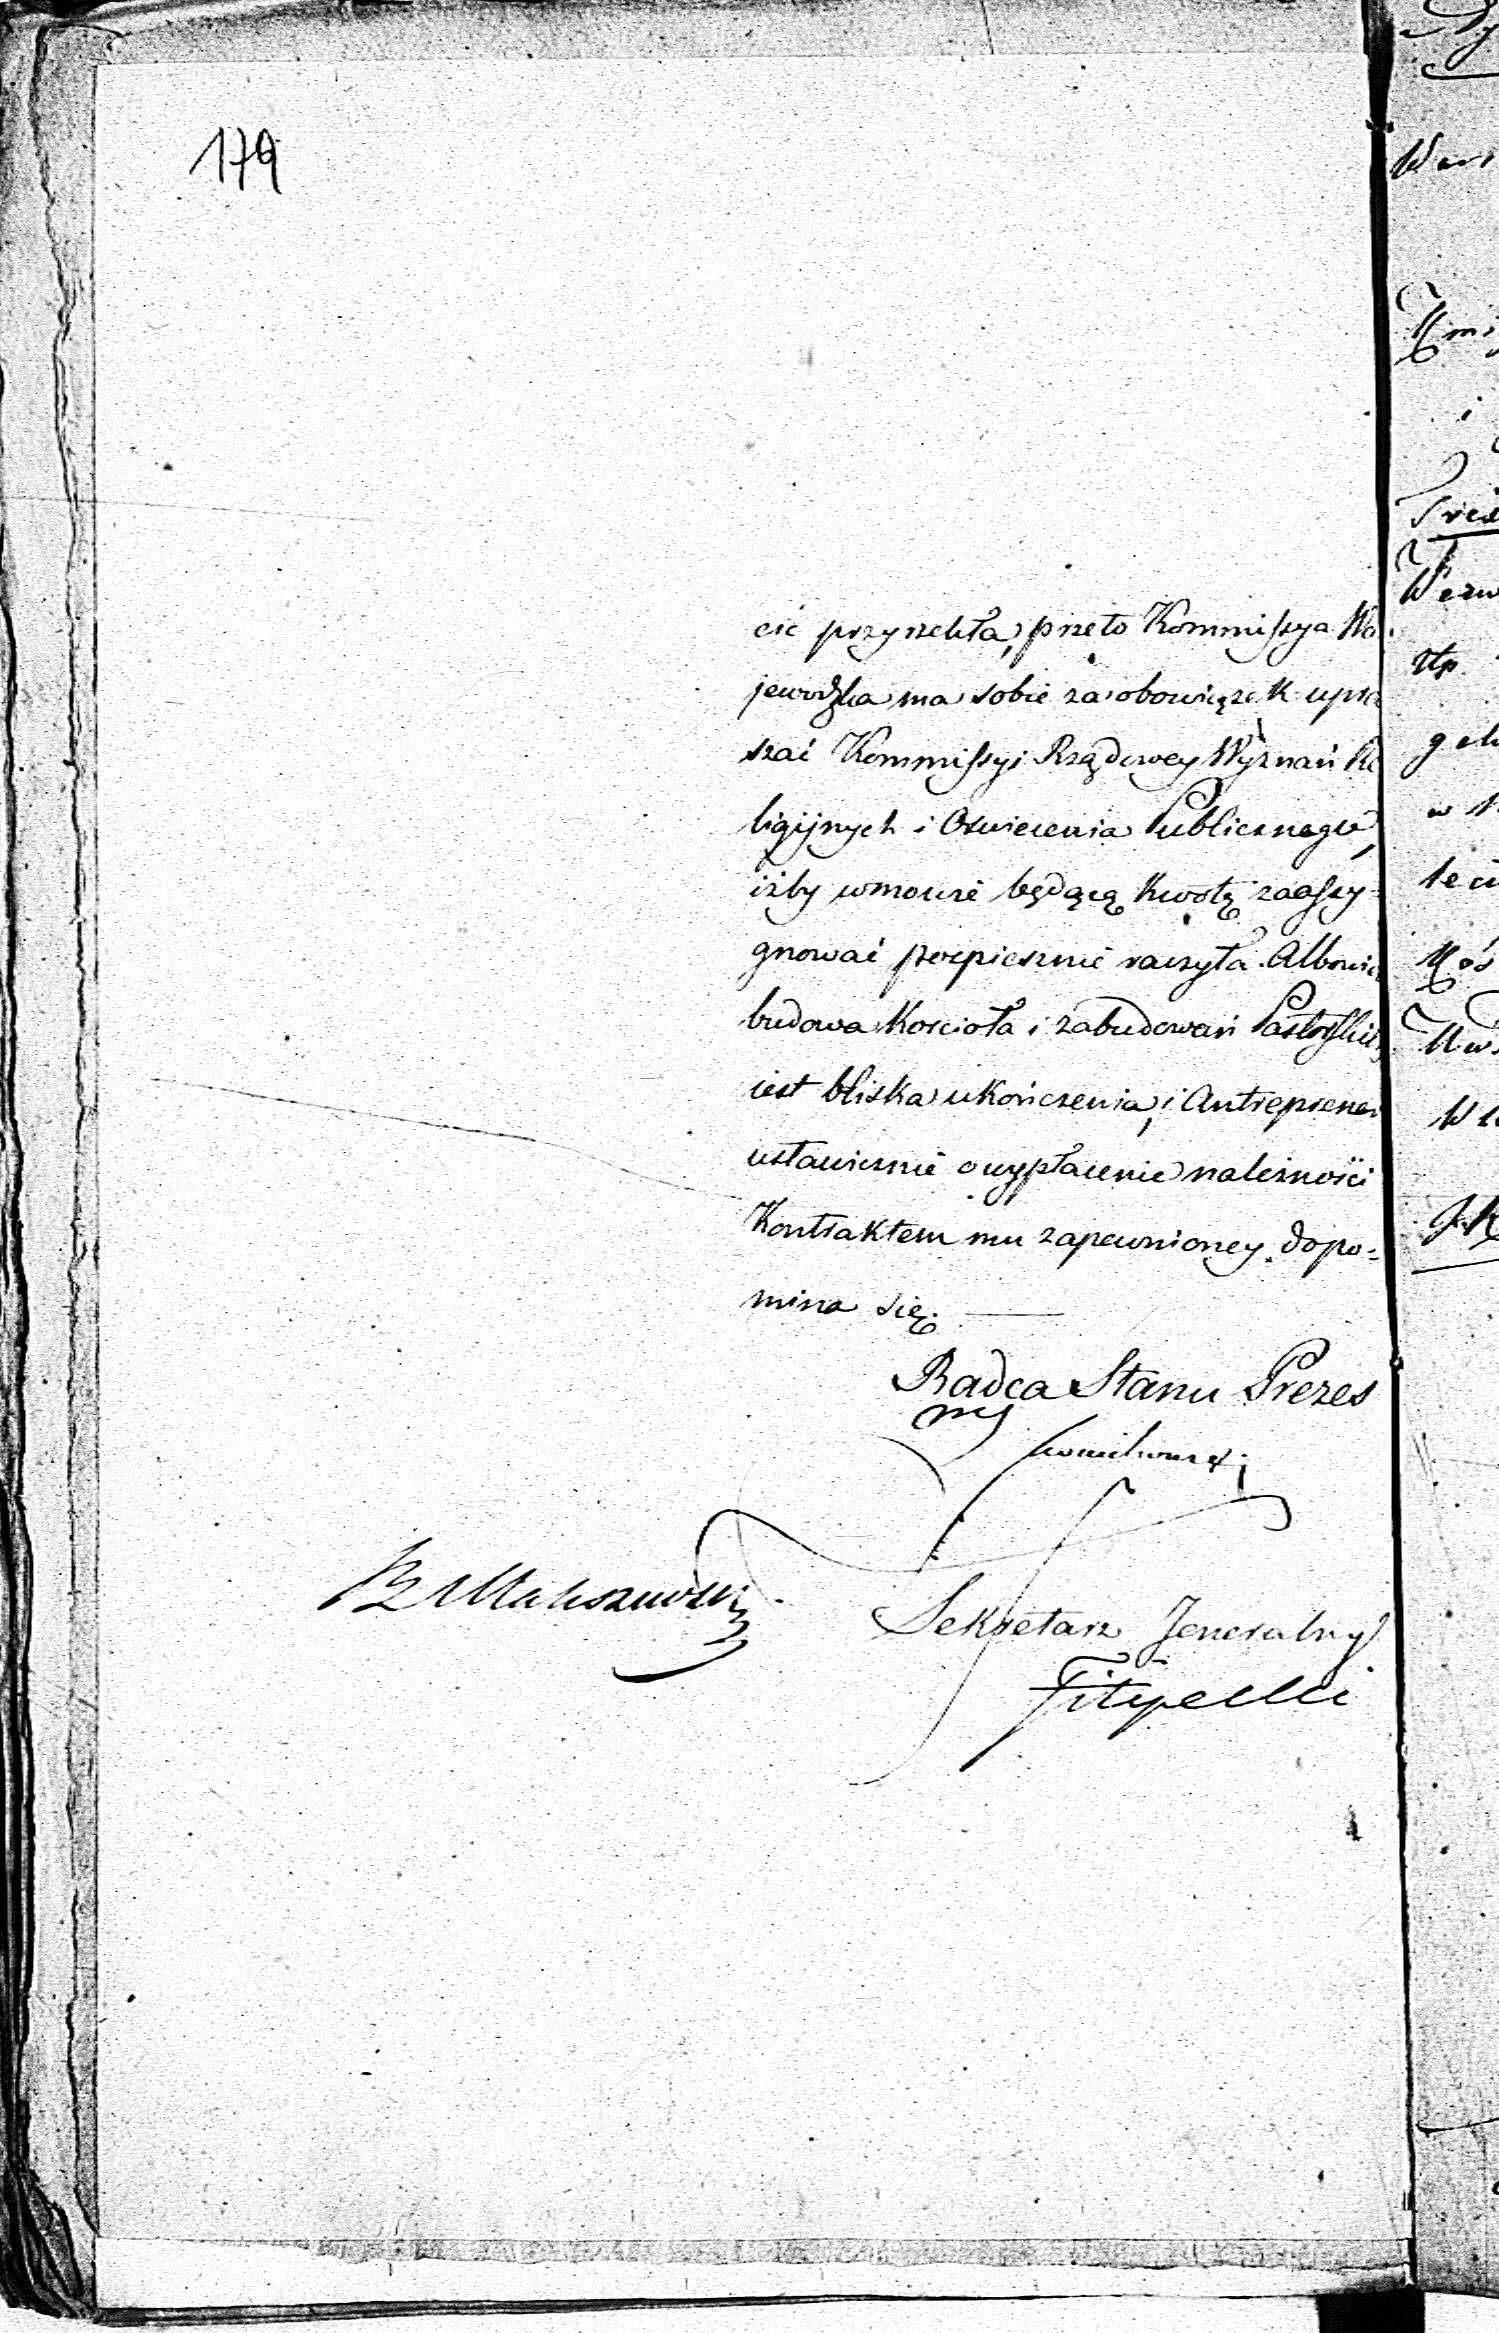 179
cić przyrzekła, przeto Kommissya Wo
jewodzka ma sobie za obowiązek upra
szać Kommissyi Rządowey Wyznań Re
ligijnych i Oswiecenia Publicznego,
iżby w mowie będącą kwotę zaassy-
gnować pospiesznie raczyła. Albowie
budowa Kościoła i zabudowań Pastorskich
iest bliska ukończenia, i Antreprener
ustawicznie o wypłacenie należności
Kontraktem mu zapewnioney dopo-
mina się.
Radca Stanu Prezes
Sekretarz Jeneralny
Filipecki